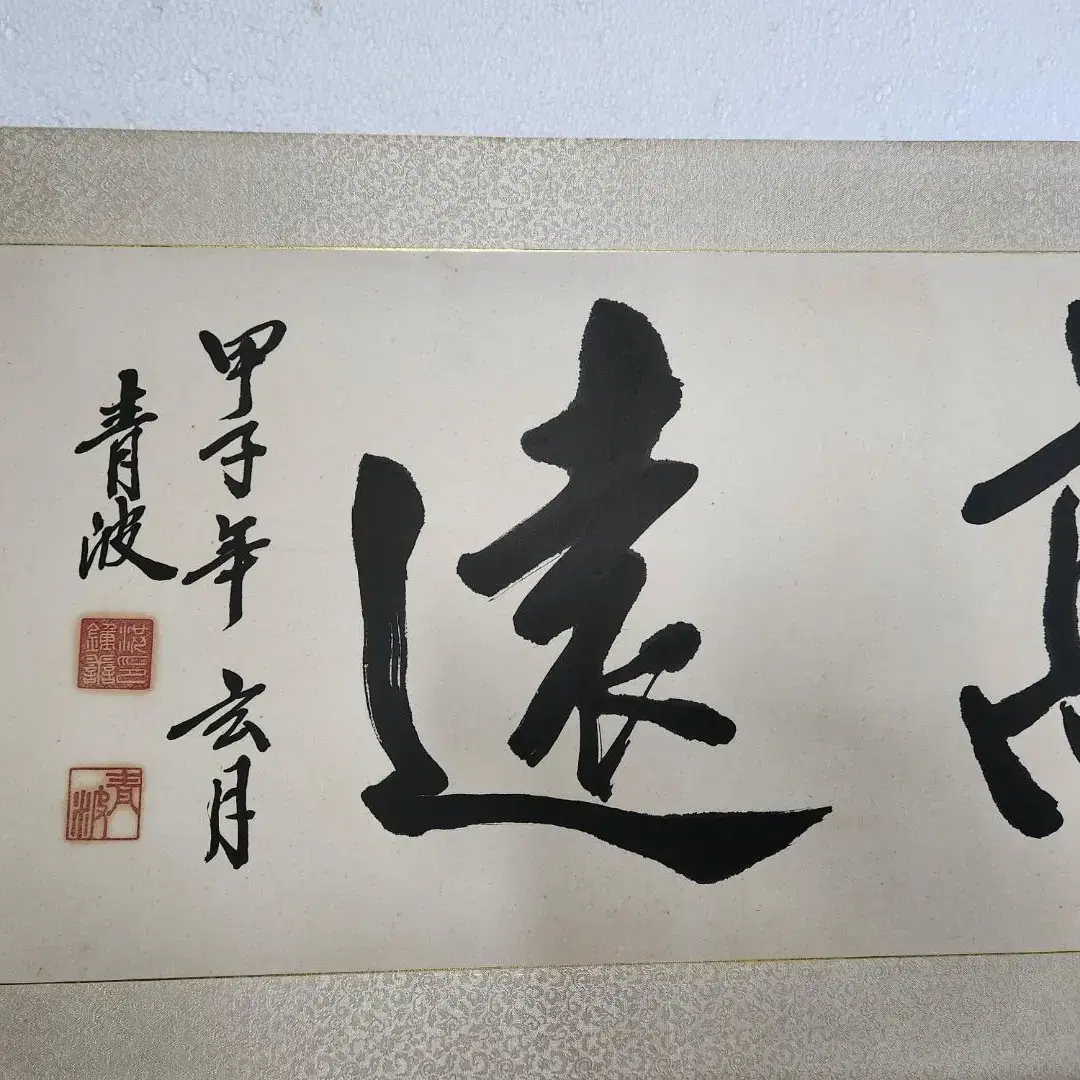 遠
甲子年 玄月
青波
青波